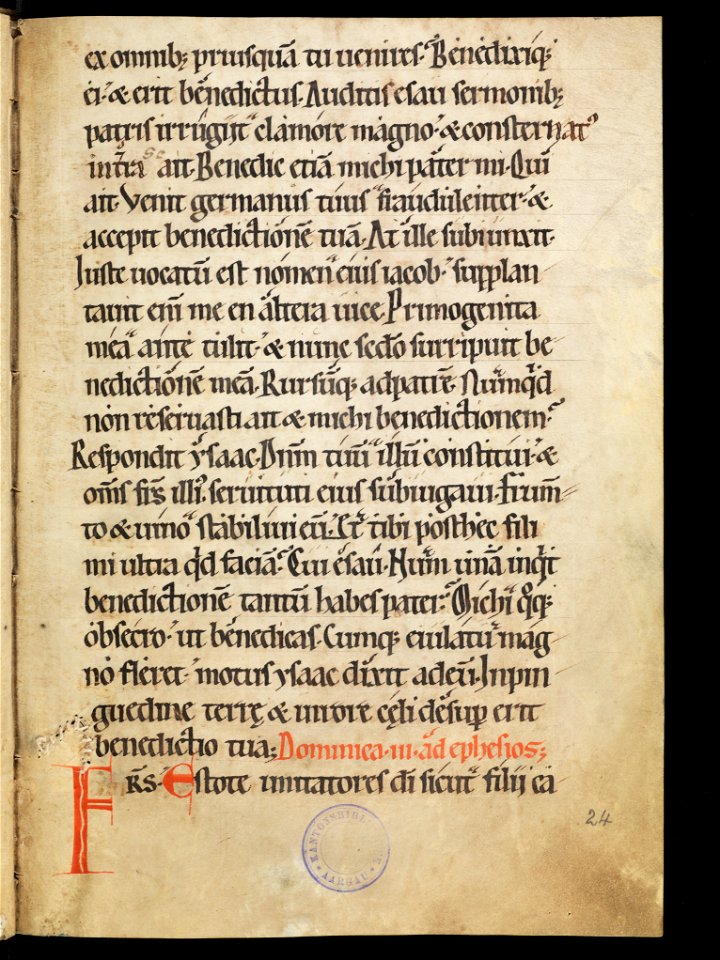 ex omnib; priusquā tu venires. Benedixiq;
ei. & erit benedictus. Auditis esau sermonib;
patris irrugiit clamore magno. & consternatᵒ
intra ait. Benedic etiā michi pater mi. Qui
ait. Venit germanus tuus fraudulenter. &
accepit benedictionē tuā. At ille subiunxit.
Iuste uocatū est nomen eius iacob. supplan
tauit eni me en altera uice. Primogenita
mea ante tulit. & nunc scdo surripuit be
nedictionē meā. Rursūq; ad patrē. Nūmqd
non reseruasti ait & michi benedictionem?
Respondit ysaac. Dnm tuū illū constitui. &
oms frs illiꝰ seruituti eius subiugaui. Frum
to & uino stabiliui eū. tibi posthęc fili
mi ultra qd faciā? Cui esau. Num unā inqt
benedictionē tantū habes pater? Michi qq;
obsecro. ut benedicas. Cumq; eiulatu mag
no fleret. motus ysaac dixit ad eū. In pin
guedine terrę & in rore cęli desup erit
benedictio tua; Dominica .iii. ad ephesios;
Frs. Estote imitatores di sicut filij ca
24
KANTONSBIBL.
AARGAU